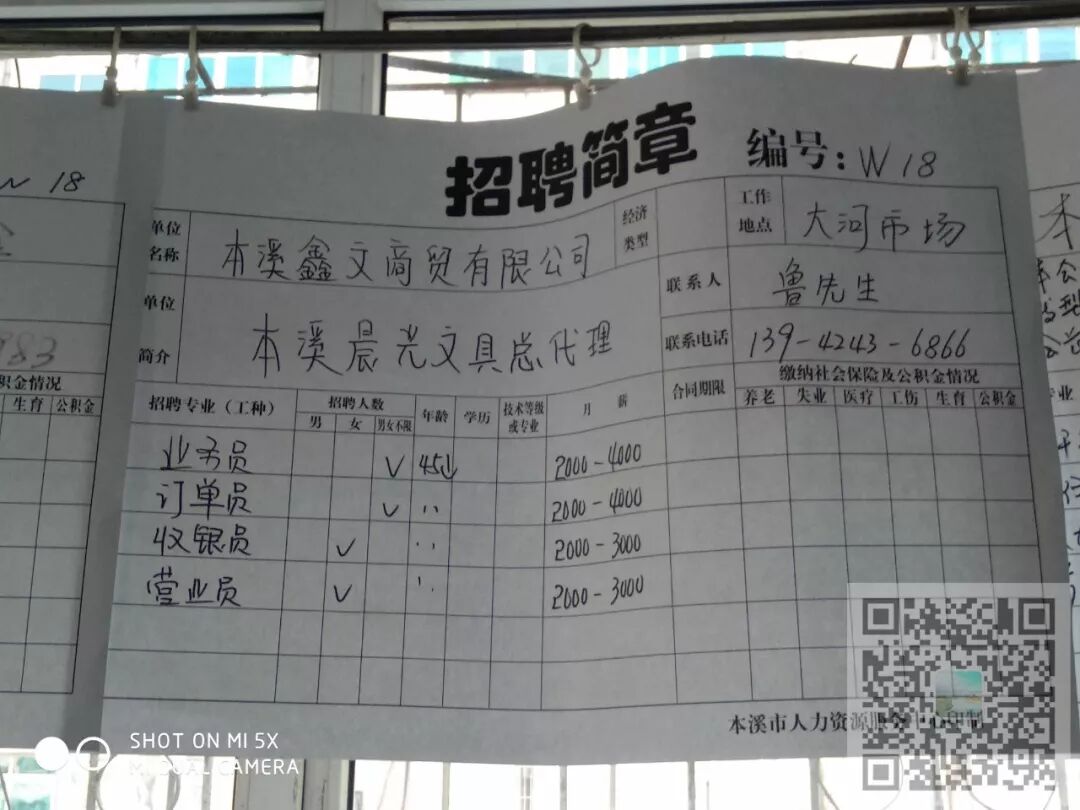 招聘简章
编号：W18
单位名称 本溪鑫文商贸有限公司 经济类型 工作地点 大河市场
联系人 鲁先生
单位简介 本溪晨光文具总代理 联系电话 139-4243-6866
招聘专业（工种） 招聘人数 年龄 学历 技术等级或专业 月薪 合同期限 缴纳社会保险及公积金情况
男 女 男女不限 养老 失业 医疗 工伤 生育 公积金
业务员 ∨ 45↓ 2000-4000
订单员 ∨ 〃 2000-4000
收银员 ∨ 〃 2000-3000
营业员 ∨ 〃 2000-3000
本溪市人力资源服务中心印制
18
983
积金情况
生育 公积金
本
SHOT ON MI 5X
MI DUAL CAMERA